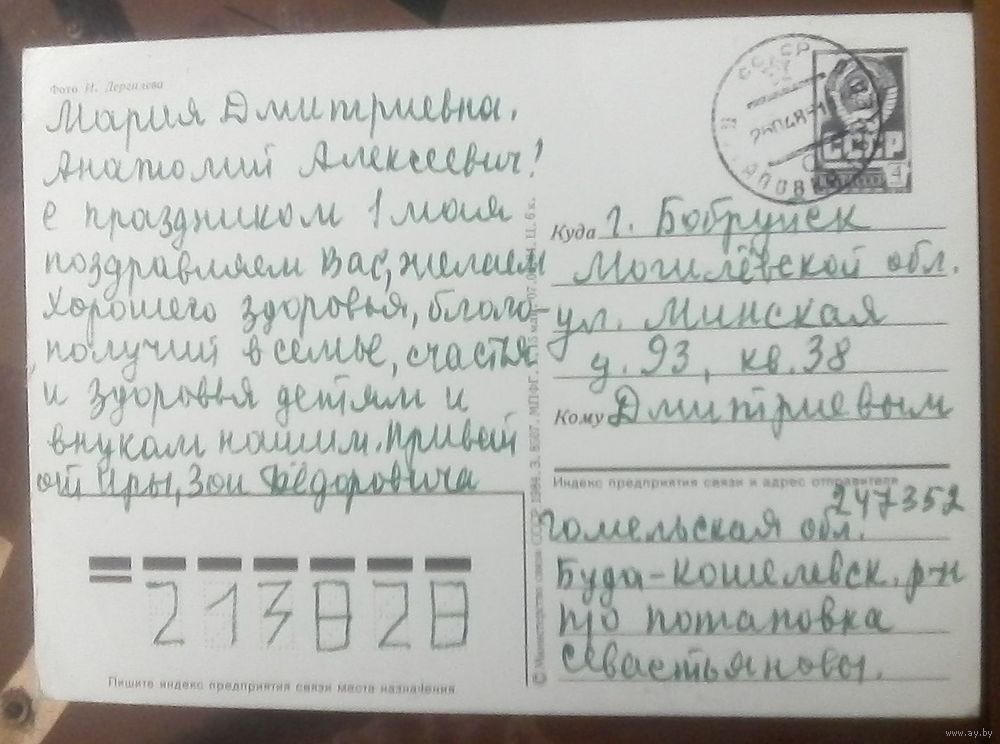 Фото И. Дергилева
Мария Дмитриевна,
Анатолий Алексеевич!
С праздником 1 мая
поздравляем Вас, желаем
хорошего здоровья, благо-
получий в семье, счастья
и здоровья детям и
внукам нашим. Привет
от Иры, Зои Фёдоровича
СССР
СССР
4
Куда г. Бобруйск
Могилёвской обл.
ул. Минская
д. 93, кв. 38
Кому Дмитриевым
Индекс предприятия связи и адрес отправителя
247352
Гомельская обл.
Буда-Кошелевск. р-н
п/о Потаповка
Севастьяновы.
213828
Пишите индекс предприятия связи места назначения
© Министерство связи СССР 1984. З. 8507. МПФГ.
www.ay.by